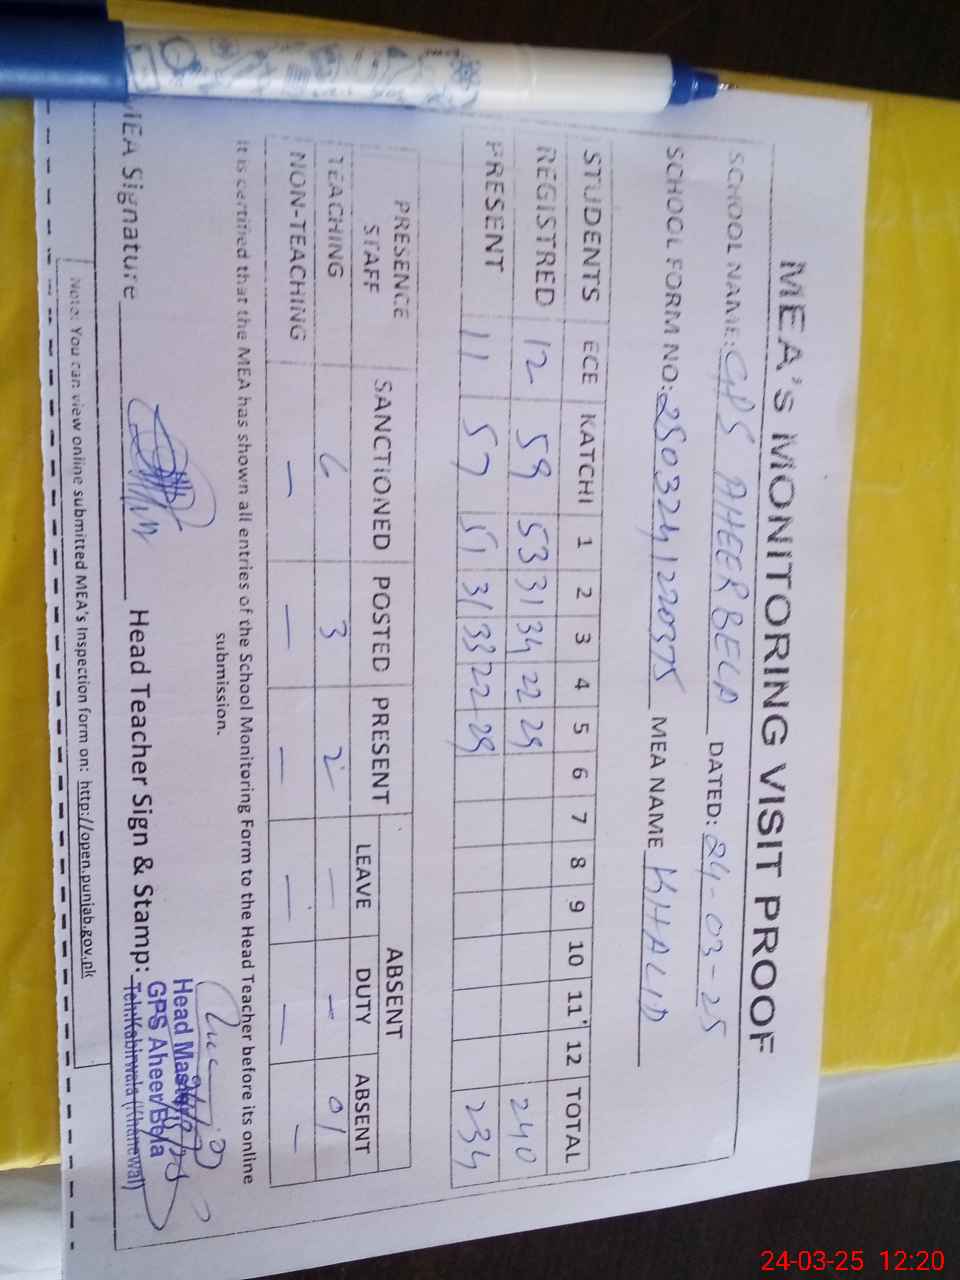 MEA'S MONITORING VISIT PROOF
SCHOOL NAME: GPS AHEER BELA DATED: 24-03-25
SCHOOL FORM NO: MEA NAME KHALID
STUDENTS ECE KATCHI 1 2 3 4 5 6 7 8 9 10 11 12 TOTAL
REGISTRED 12 59 53 31 34 22 29 240
PRESENT 11 57 51 31 33 22 29 234
PRESENCE STAFF SANCTIONED POSTED PRESENT ABSENT
LEAVE DUTY ABSENT
TEACHING 6 3 2 — — 01
NON-TEACHING — — — — — —
It is certified that the MEA has shown all entries of the School Monitoring Form to the Head Teacher before its online
submission.
MEA Signature Head Teacher Sign & Stamp:
Head Master
GPS Aheer Bela
Teh: Kabirwala (Khanewal)
Note: You can view online submitted MEA's inspection form on: http://open.punjab.gov.pk
24-03-25 12:20